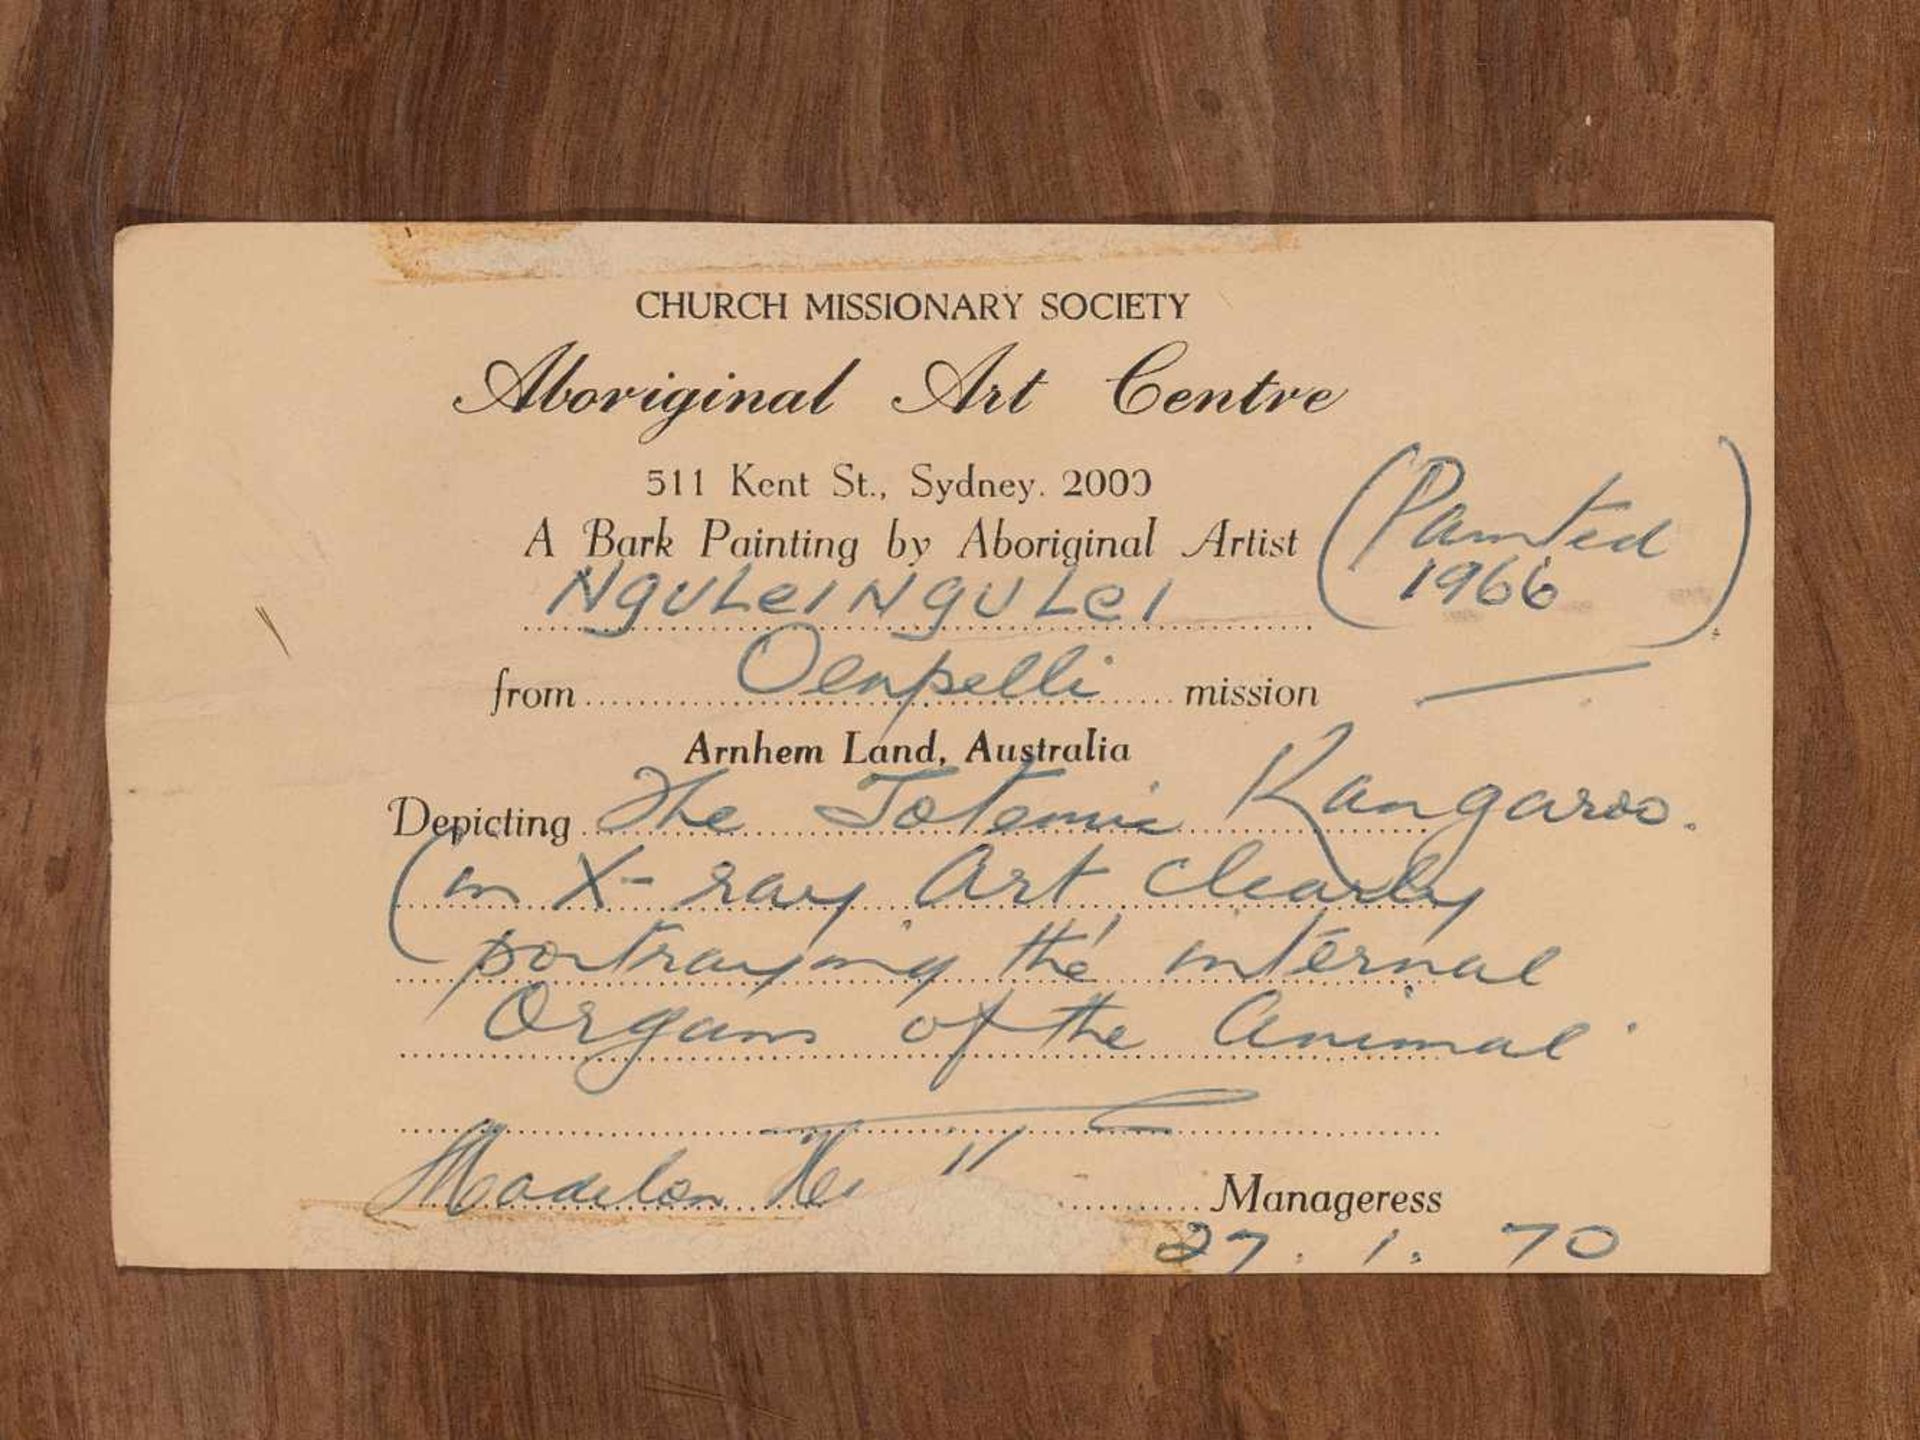 CHURCH MISSIONARY SOCIETY
Aboriginal Art Centre
511 Kent St., Sydney. 2000
A Bark Painting by Aboriginal Artist
NguLeINguLeI
(Painted
1966)
from Oenpelli mission
Arnhem Land, Australia
Depicting The Totemic Kangaroo.
(in X-ray Art clearly
portraying the internal
Organs of the Animal.
Madelon Manageress
27. 1. 70